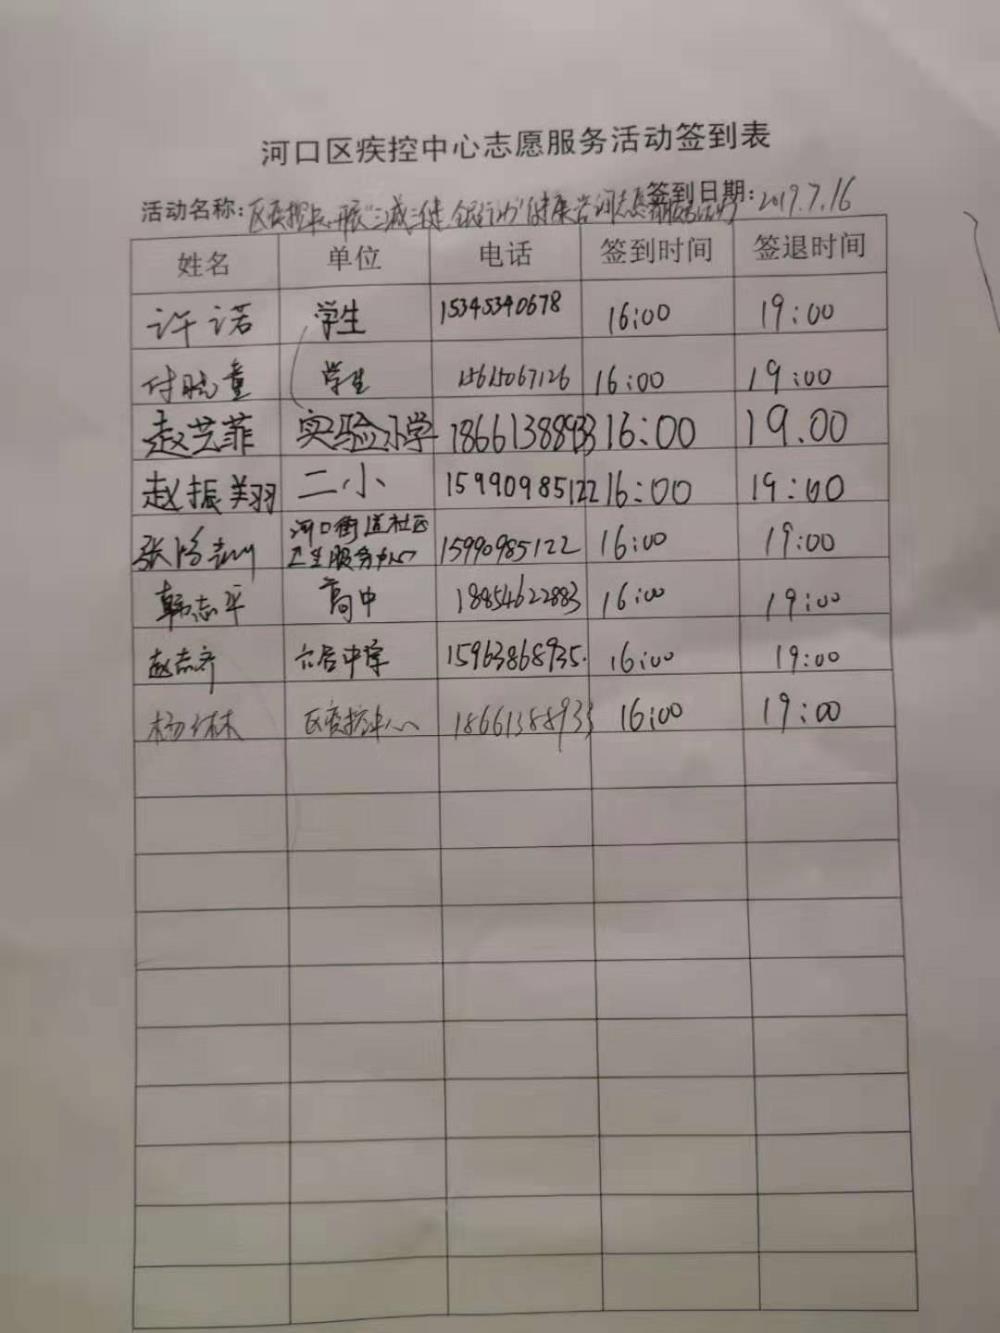 河口区疾控中心志愿服务活动签到表
活动名称: 区疾控中心开展"三减三健 全民行动"健康咨询志愿服务活动 签到日期: 2019.7.16
姓名 单位 电话 签到时间 签退时间
许诺 学生 15345340678 16:00 19:00
付晓童 学生 15615067126 16:00 19:00
赵艺菲 实验小学 18661388933 16:00 19.00
赵振翔 二小 15990985122 16:00 19:00
张 河口街道社区
卫生服务中心 15990985122 16:00 19:00
韩志平 高中 18854622883 16:00 19:00
赵志齐 六合中学 15963868935. 16:00 19:00
杨林 区疾控中心 18661388933 16:00 19:00